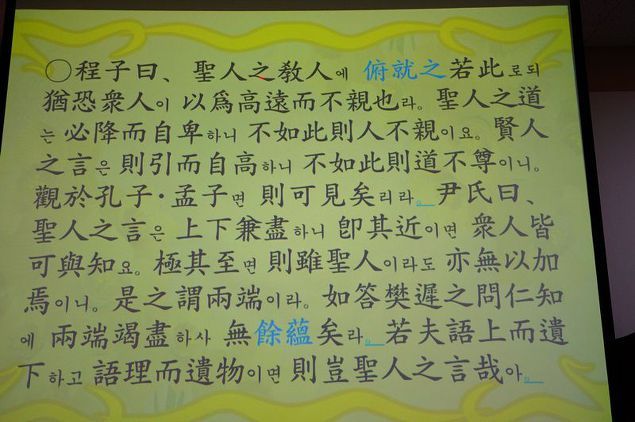 ○程子曰、聖人之敎人에 俯就之若此로되
猶恐衆人이 以爲高遠而不親也라。聖人之道
는 必降而自卑하니 不如此則人不親이요。賢人
之言은 則引而自高하니 不如此則道不尊이니。
觀於孔子·孟子면 則可見矣리라 尹氏曰、
聖人之言은 上下兼盡하니 卽其近이면 衆人皆
可與知요。極其至면 則雖聖人이라도 亦無以加
焉이니。是之謂兩端이라。如答樊遲之問仁知
에 兩端竭盡하사 無餘蘊矣라 若夫語上而遺
下하고 語理而遺物이면 則豈聖人之言哉아